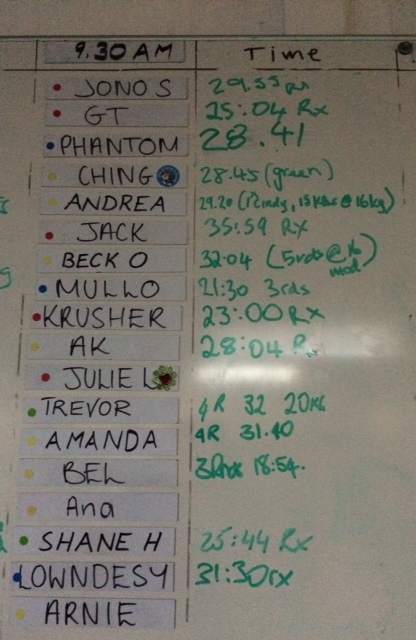 9.30 AM Time
JONO S 29.55
GT 25:04 Rx
PHANTOM 28.41
CHING 28.45 (green)
ANDREA 29.20 (, 15 @ 16kg)
JACK 35:59 Rx
BECK O 32:04 (5rds @
MULLO 21:30 3rds
KRUSHER 23:00 Rx
AK 28:04 Rx
JULIE L
TREVOR 4R 32 20KG
AMANDA 4R 31.40
BEL 18:54
Ana
SHANE H 25:44 Rx
LOWNDESY 31:30rx
ARNIE